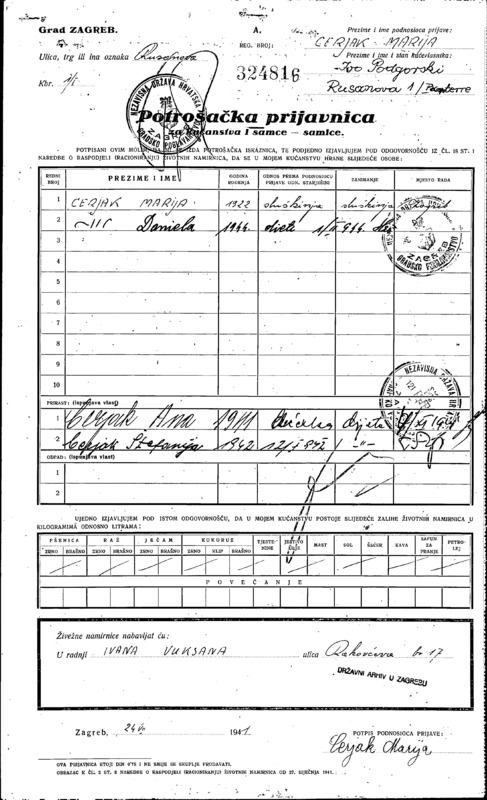 Grad ZAGREB.
A.
Prezime i ime podnosioca prijave:
REG. BROJ:
CERJAK MARIJA
Ulica, trg ili ina oznaka Rusanova
Prezime i ime i stan kućevlasnika:
324816
Ivo Podgorski
Kbr. 1/I
Rusanova 1/
NEZAVISNA DRŽAVA HRVATSKA
ZAGREB
Potrošačka prijavnica
za kućanstva i samce – samice.
POTPISANI OVIM MOLIM DA MI SE IZDA POTROŠAČKA ISKAZNICA, TE PODJEDNO IZJAVLJUJEM POD ODGOVORNOŠĆU IZ ČL. 18 ST. 1
NAREDBE O RASPODJELI (RACIONIRANJU) ŽIVOTNIH NAMIRNICA, DA SE U MOJEM KUĆANSTVU HRANE SLIJEDEĆE OSOBE:
REDNI BROJ
PREZIME I IME
GODINA ROĐENJA
ODNOS PREMA PODNOSIOCU PRIJAVE ODN. STARJEŠINI
ZANIMANJE
MJESTO RADA
1 CERJAK MARIJA 1922 služkinja služkinja Zagreb
2 Daniela 1944. dijete
3
4
5
6
7
8
9
10
NEZAVISNA DRŽAVA HR
PRIRAST: (Ispunjava vlast)
1 Cerjak Ana 19
2 Cerjak Štefanija 1942
OTPAD: (Ispunjava vlast)
1
2
UJEDNO IZJAVLJUJEM POD ISTOM ODGOVORNOŠĆU, DA U MOJEM KUĆANSTVU POSTOJE SLIJEDEĆE ZALIHE ŽIVOTNIH NAMIRNICA U
KILOGRAMIMA ODNOSNO LITRAMA:
PŠENICA RAŽ JEČAM KUKURUZ TJESTENINE JESTIVO ULJE MAST SOL ŠEĆER KAVA SAPUN ZA PRANJE PETROLEJ
ZRNO BRAŠNO ZRNO BRAŠNO ZRNO BRAŠNO ZRNO KLIP BRAŠNO
POVEĆANJE
Živežne namirnice nabavljat ću:
U radnji IVANA VUKSANA ulica Rakovčeva br 17
DRŽAVNI ARHIV U ZAGREBU
Zagreb, 24 1941
POTPIS PODNOSIOCA PRIJAVE:
Cerjak Marija
OVA PRIJAVNICA STOJI DIN 0'75 I NE SMIJE SE SKUPLJE PRODAVATI.
OBRAZAC K ČL. 2 ST. 2 NAREDBE O RASPODJELI (RACIONIRANJU) ŽIVOTNIH NAMIRNICA OD 27. SIJEČNJA 1941.